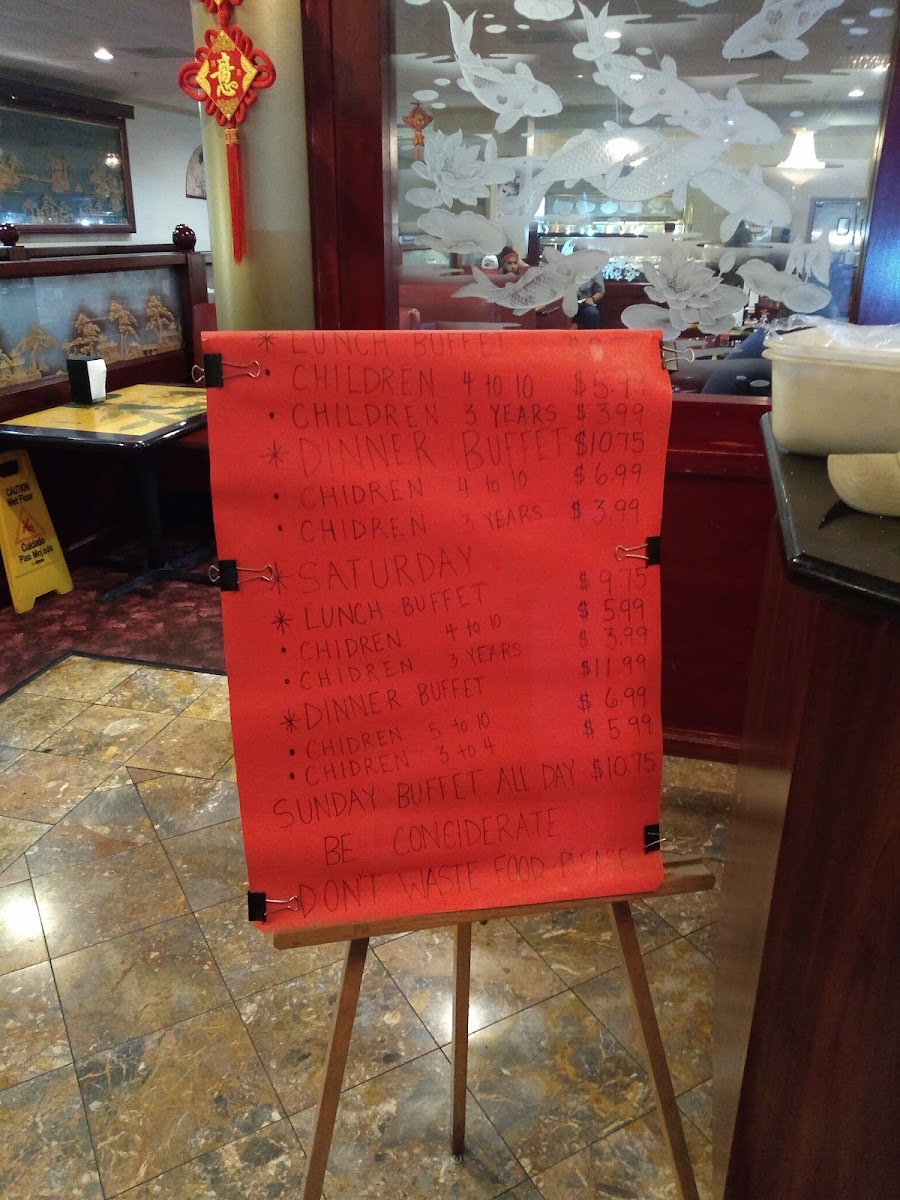 意
* LUNCH BUFFET
• CHILDREN 4 to 10 $5.99
• CHILDREN 3 YEARS $3.99
* DINNER BUFFET $10.75
• CHIDREN 4 to 10 $6.99
• CHIDREN 3 YEARS $3.99
* SATURDAY
* LUNCH BUFFET $9.75
• CHIDREN 4 to 10 $5.99
• CHIDREN 3 YEARS $3.99
* DINNER BUFFET $11.99
• CHIDREN 5 to 10 $6.99
• CHIDREN 3 to 4 $5.99
SUNDAY BUFFET ALL DAY $10.75
BE CONCIDERATE
DON'T WASTE FOOD PLEASE
CAUTION
Wet Floor
Cuidado
Piso Mojado